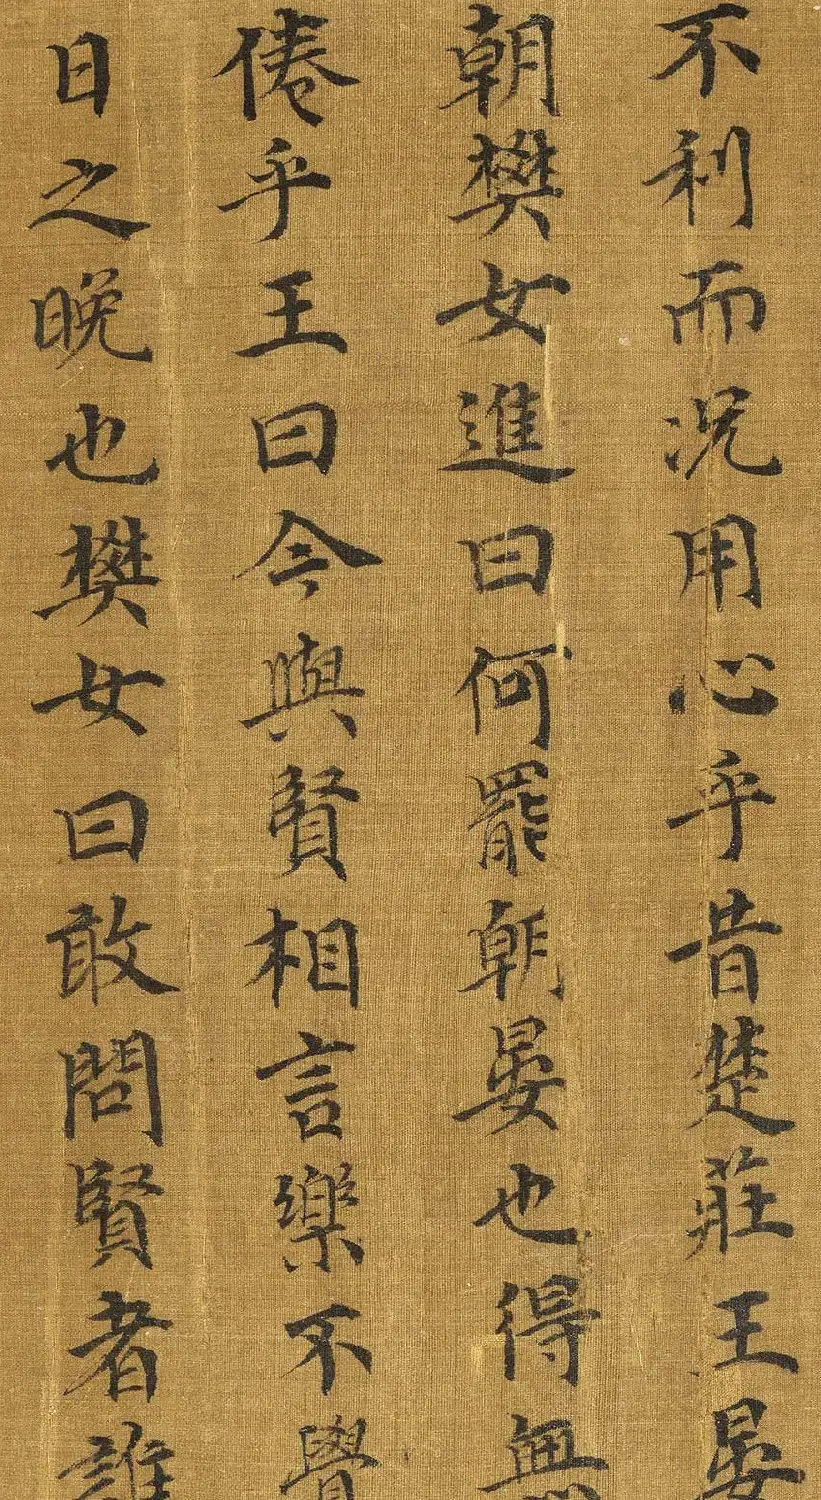 不利而況用心乎昔楚莊王晏
朝樊女進曰何罷朝晏也得無
倦乎王曰今與賢相言樂不覺
日之晚也樊女曰敢問賢者誰